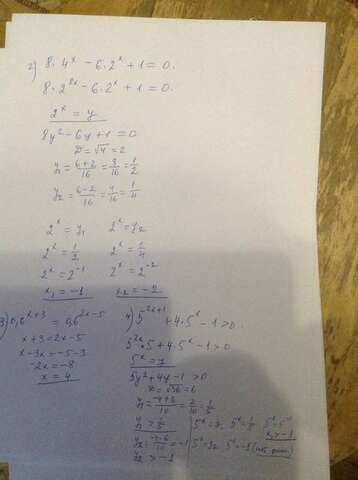 2) 8·4^x − 6·2^x + 1 = 0.
8·2^2x − 6·2^x + 1 = 0.
2^x = y
8y² − 6y + 1 = 0
D = √4 = 2
y₁ = 6+2/16 = 8/16 = 1/2
y₂ = 6−2/16 = 4/16 = 1/4
2^x = y₁ 2^x = y₂
2^x = 1/2 2^x = 1/4
2^x = 2^-1 2^x = 2^-2
x₁ = −1 x₂ = −2
3) 0,6^x+3 = 0,6^2x−5
x+3 = 2x−5
x−2x = −5−3
x = 4
4) 5^2x+1 + 4·5^x − 1 > 0.
5^2x·5 + 4·5^x − 1 > 0
5^x = y
5y² + 4y − 1 > 0
D = √36 = 6
y₁ = −4+6/10 = 2/10 = 1/5
y₁ > 1/5 5^x = 1/5 5^x = 5^-1
x₁ > −1
y₂ = −4−6/10 = −1 5^x = y₂ 5^x = −1
y₂ > −1